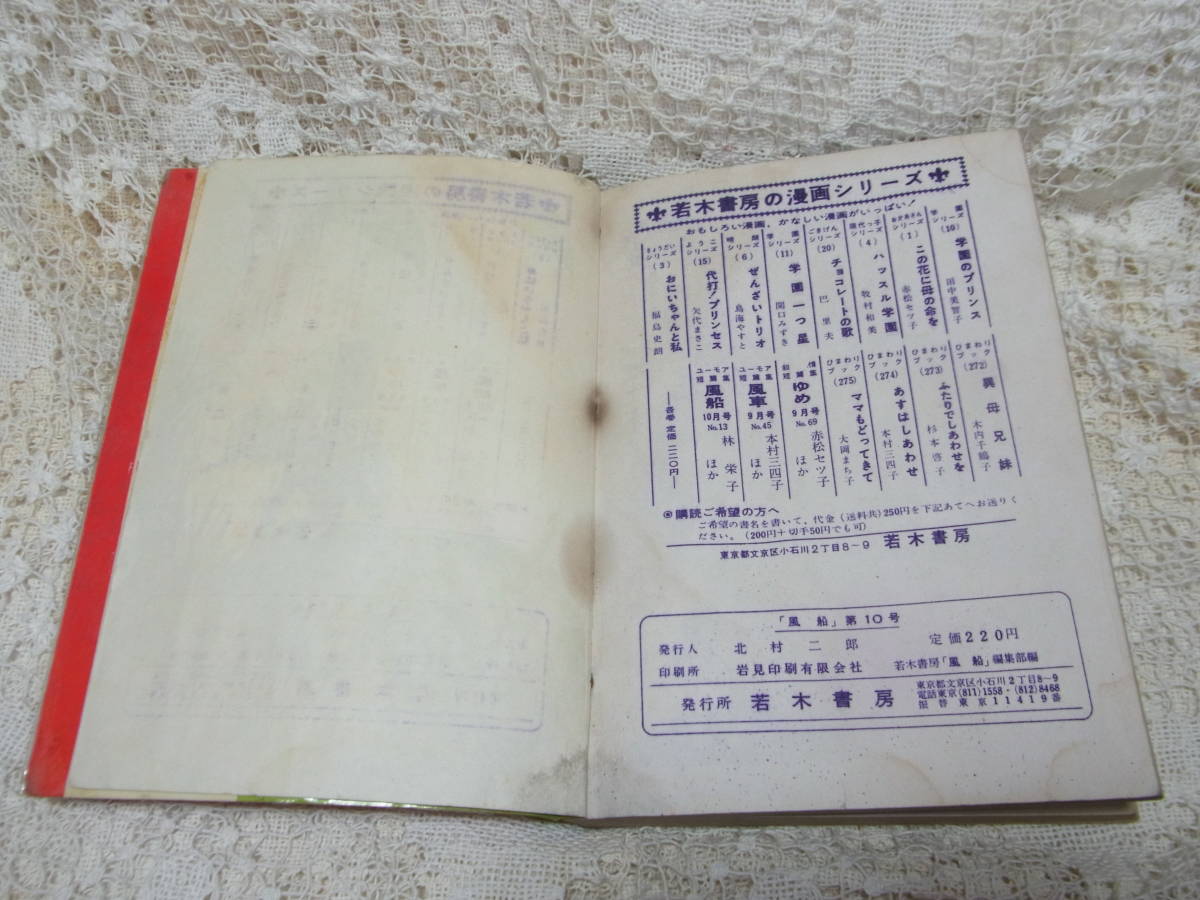 若木書房の漫画シリーズ
おもしろい漫画、かなしい漫画がいっぱい！
学園シリーズ(10) 学園のプリンス 田中美智子
(1) この花に母の命を 赤松セツ子
現代っ子シリーズ(4) ハッスル学園 牧村和美
ごきげんシリーズ(20) チョコレートの歌 巴里夫
学園シリーズ(11) 学園一つ星 関口みずき
シリーズ(6) ぜんざいトリオ 鳥海やすと
ようこシリーズ(15) 代打！プリンセス 矢代まさこ
きょうだいシリーズ(3) おにいちゃんと私 福島史朗
ひまわりブック(272) 異母兄妹 木内千鶴子
ひまわりブック(273) ふたりでしあわせを 杉本啓子
ひまわりブック(274) あすはしあわせ 本村三四子
ひまわりブック(275) ママもどってきて 大岡まち子
短篇集 ゆめ 9月号 No.69 赤松セツ子 ほか
ユーモア短篇集 風車 9月号 No.45 本村三四子 ほか
ユーモア短篇集 風船 10月号 No.13 林栄子 ほか
―各巻 定価 二二〇円―
◎購読ご希望の方へ
ご希望の書名を書いて、代金（送料共）250円を下記あてへお送りく
ださい。（200円＋切手50円でも可）
東京都文京区小石川2丁目8～9 若木書房
「風船」第10号
発行人 北村二郎 定価220円
印刷所 岩見印刷有限会社 若木書房「風船」編集部編
発行所 若木書房
東京都文京区小石川2丁目8～9
電話東京(811)1558・(812)8468
振替東京11419番